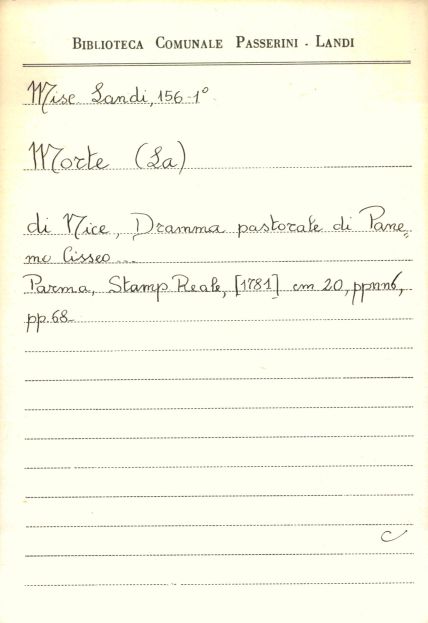 BIBLIOTECA COMUNALE PASSERINI - LANDI
Misc. Landi, 156-1°
Morte (La)
di Nice, Dramma pastorale di Pane=
mo Cisseo...
Parma, Stamp. Reale, [1781] cm 20, ppnn6,
pp. 68
C